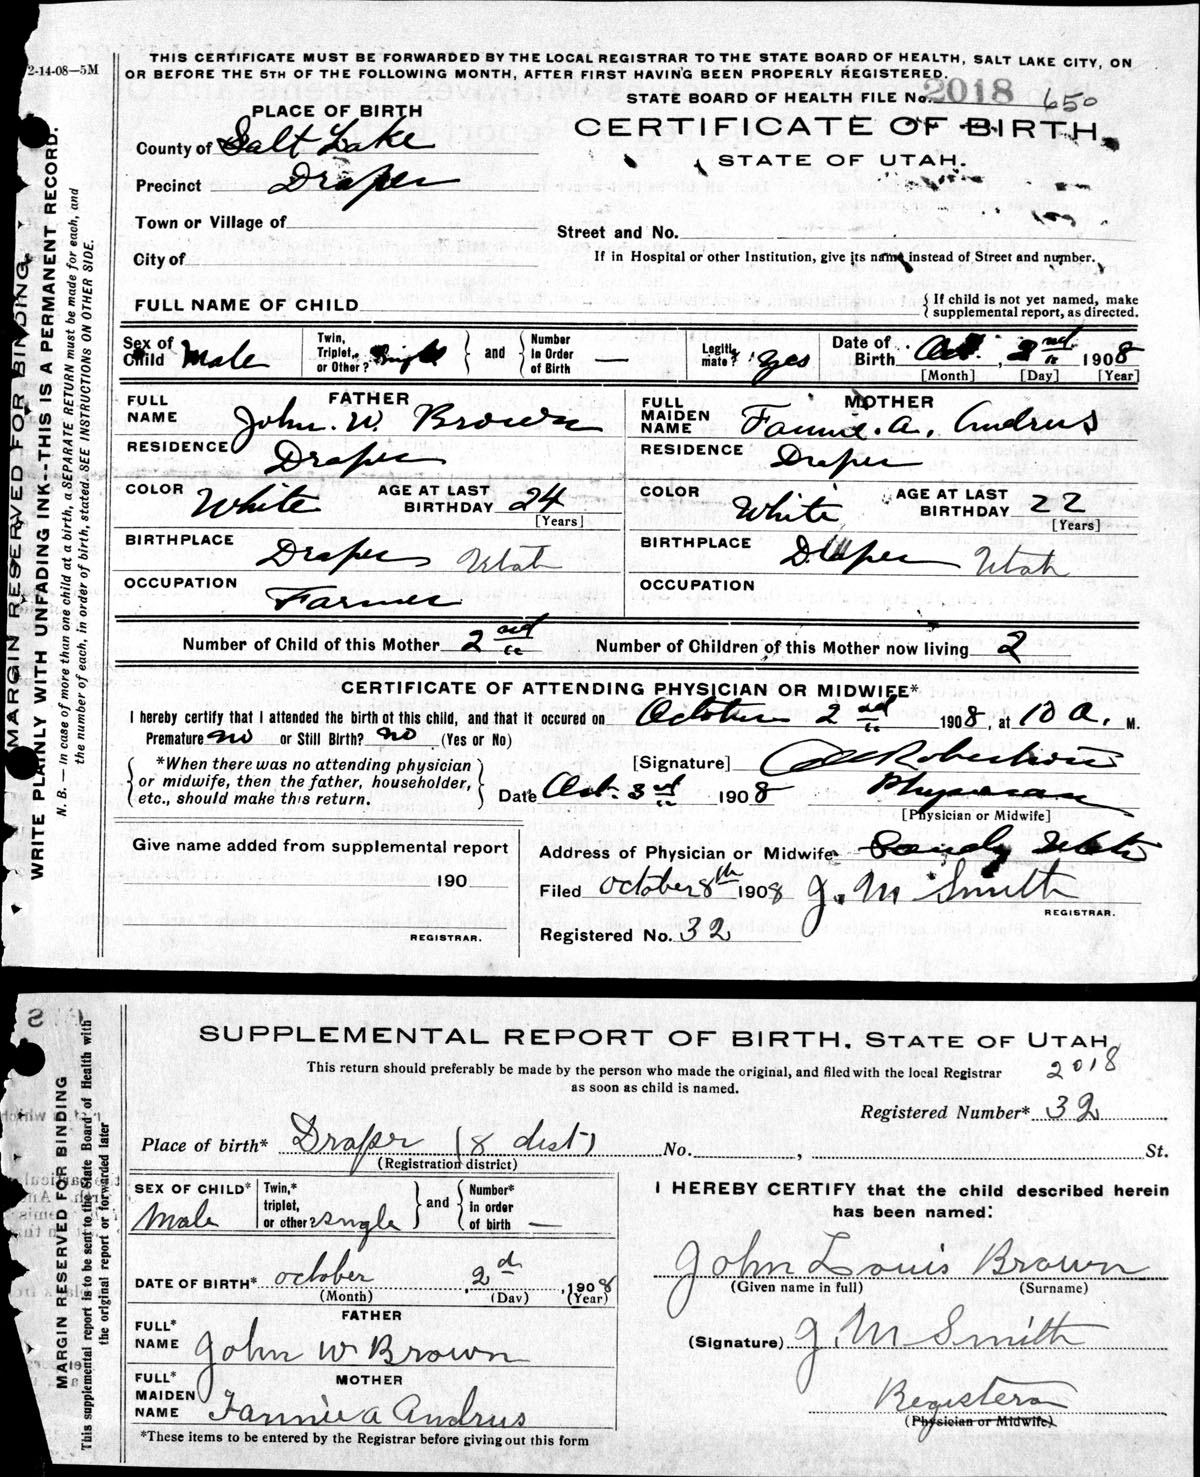 2-14-08—5M
THIS CERTIFICATE MUST BE FORWARDED BY THE LOCAL REGISTRAR TO THE STATE BOARD OF HEALTH, SALT LAKE CITY, ON
OR BEFORE THE 5TH OF THE FOLLOWING MONTH, AFTER FIRST HAVING BEEN PROPERLY REGISTERED.
STATE BOARD OF HEALTH FILE No. 2018 650
PLACE OF BIRTH
CERTIFICATE OF BIRTH
STATE OF UTAH.
County of Salt Lake
Precinct Draper
Town or Village of
Street and No.
City of
If in Hospital or other Institution, give its name instead of Street and number.
FULL NAME OF CHILD
{ If child is not yet named, make
supplemental report, as directed.
Sex of Child Male
Twin, Triplet, or Other? Single } and { Number in Order of Birth —
Legiti-mate? Yes
Date of Birth Oct. 2nd 1908
[Month] [Day] [Year]
FATHER
FULL NAME John. W. Brown
RESIDENCE Draper
COLOR White AGE AT LAST BIRTHDAY 24
[Years]
BIRTHPLACE Draper Utah
OCCUPATION Farmer
MOTHER
FULL MAIDEN NAME Fannie. A. Andrus
RESIDENCE Draper
COLOR White AGE AT LAST BIRTHDAY 22
[Years]
BIRTHPLACE Draper Utah
OCCUPATION
Number of Child of this Mother 2nd Number of Children of this Mother now living 2
CERTIFICATE OF ATTENDING PHYSICIAN OR MIDWIFE*
I hereby certify that I attended the birth of this child, and that it occured on October 2nd 1908, at 10 a. M.
Premature no or Still Birth? no (Yes or No)
{ *When there was no attending physician
or midwife, then the father, householder,
etc., should make this return. }
[Signature] Robertson
Date Oct. 3rd 1908 Physician
[Physician or Midwife]
Give name added from supplemental report
190
REGISTRAR.
Address of Physician or Midwife Sandy Utah
Filed October 8th 1908 J. M Smith
REGISTRAR.
Registered No. 32
MARGIN RESERVED FOR BINDING
WRITE PLAINLY WITH UNFADING INK--THIS IS A PERMANENT RECORD.
N. B. — In case of more than one child at a birth, a SEPARATE RETURN must be made for each, and
the number of each, in order of birth, stated. SEE INSTRUCTIONS ON OTHER SIDE.
SUPPLEMENTAL REPORT OF BIRTH, STATE OF UTAH
This return should preferably be made by the person who made the original, and filed with the local Registrar
as soon as child is named.
2018
Registered Number* 32
Place of birth* Draper (8 dist) No. , St.
(Registration district)
SEX OF CHILD* Male
Twin,* triplet, or other? single } and { Number* in order of birth —
DATE OF BIRTH* October 2d, 1908
(Month) (Day) (Year)
FATHER
FULL* NAME John W Brown
MOTHER
FULL* MAIDEN NAME Fannie A Andrus
*These items to be entered by the Registrar before giving out this form
I HEREBY CERTIFY that the child described herein
has been named:
John Louis Brown
(Given name in full) (Surname)
(Signature) J M Smith
Registera
(Physician or Midwife)
MARGIN RESERVED FOR BINDING
This supplemental report is to be sent to the State Board of Health with
the original report or forwarded later